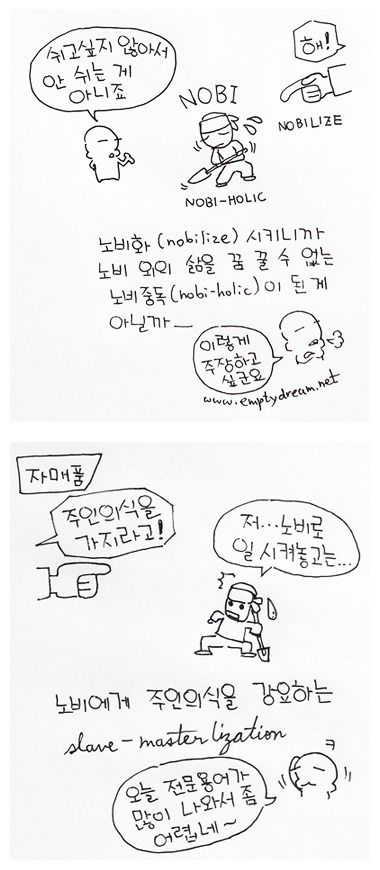 쉬고싶지 않아서
안 쉬는 게
아니죠
해!
NOBI
NOBILIZE
NOBI-HOLIC
노비화 (nobilize) 시키니까
노비 외의 삶을 꿈 꿀 수 없는
노비중독(nobi-holic)이 된 게
아닐까—
이렇게
주장하고
싶군요
www.emptydream.net
자매품
주인의식을
가지라고!
저...노비로
일 시켜놓고는...
노비에게 주인의식을 강요하는
slave-masterlization
ㅋ
오늘 전문용어가
많이 나와서 좀
어렵네~